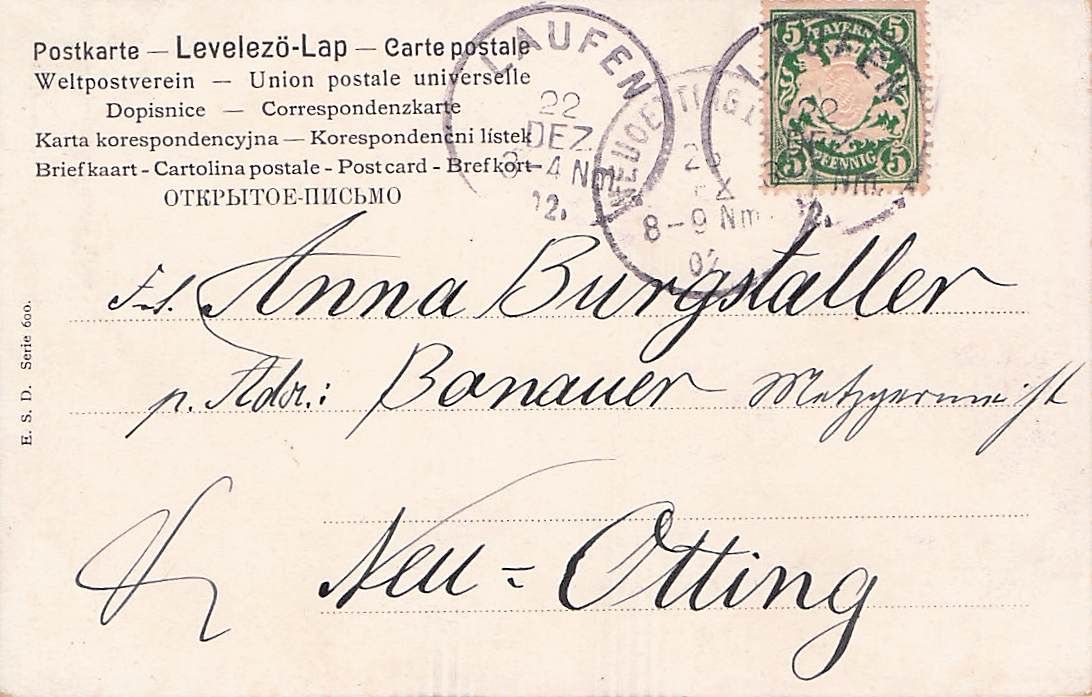 Postkarte — Levelezö-Lap — Carte postale
Weltpostverein — Union postale universelle
Dopisnice — Correspondenzkarte
Karta korespondencyjna — Korespondenční lístek
Briefkaart - Cartolina postale - Postcard - Brefkort
ОТКРЫТОЕ-ПИСЬМО
LAUFEN
22
DEZ
3-4 Nm.
02.
NEUOETTING
8-9 Nm.
02
LAUFEN
5 BAYERN 5
5 PFENNIG 5
E. S. D. Serie 600.
Frl. Anna Burgstaller
p. Adr.: Bonauer Metzgermeist
Neu-Otting